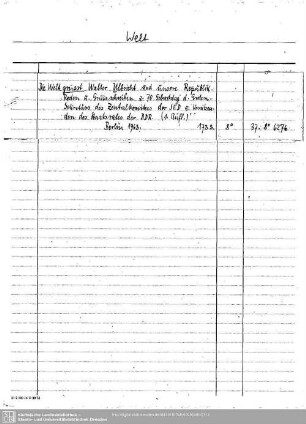 Welt
Die Welt grüsst Walter Ulbricht und unsere Republik.
Reden u. Grussschreiben z. 70. Geburtstag d. Ersten
Sekretärs des Zentralkomitees der SED u. Vorsitzen-
den des Staatsrates der DDR. (1. Aufl.)
Berlin 1963. 173 S. 8° 37. 8° 6276
Sächsische Landesbibliothek -
Staats- und Universitätsbibliothek Dresden